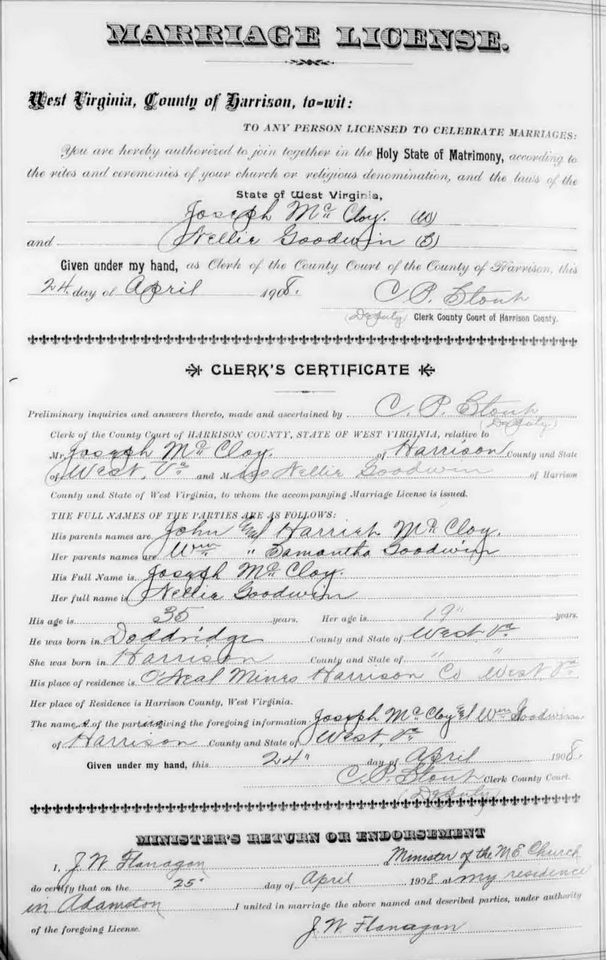 MARRIAGE LICENSE.
West Virginia, County of Harrison, to=wit:
TO ANY PERSON LICENSED TO CELEBRATE MARRIAGES:
You are hereby authorized to join together in the Holy State of Matrimony, according to
the rites and ceremonies of your church or religious denomination, and the laws of the
State of West Virginia,
Joseph McCloy. (W)
and Nellie Goodwin (S)
Given under my hand, as Clerk of the County Court of the County of Harrison, this
24. day of April 1908. C. P. Stout
(Deputy) Clerk County Court of Harrison County.
CLERK'S CERTIFICATE
Preliminary inquiries and answers thereto, made and ascertained by C. P. Stout
(Deputy)
Clerk of the County Court of HARRISON COUNTY, STATE OF WEST VIRGINIA, relative to
Mr. Joseph McCloy. of Harrison County and State
of West. Va and Miss Nellie Goodwin of Harrison
County and State of West Virginia, to whom the accompanying Marriage License is issued.
THE FULL NAMES OF THE PARTIES ARE AS FOLLOWS:
His parents names are John & Harriet McCloy.
Her parents names are Wm " Samantha Goodwin
His Full Name is Joseph McCloy.
Her full name is Nellie Goodwin
His age is 35 years. Her age is 19" years.
He was born in Doddridge County and State of West Va
She was born in Harrison County and State of " "
His place of residence is O'Neal Mines Harrison Co West Va
Her place of Residence is Harrison County, West Virginia.
The names of the parties giving the foregoing information Joseph McCloy & Wm Goodwin
of Harrison County and State of West. Va
Given under my hand, this 24" day of April 1908.
C. P. Stout Clerk County Court.
(Deputy)
MINISTER'S RETURN OR ENDORSEMENT
I, J. W. Flanagan Minister of the M E Church
do certify that on the 25" day of April 1908 at my residence
in Adamston I united in marriage the above named and described parties, under authority
of the foregoing License. J. W. Flanagan